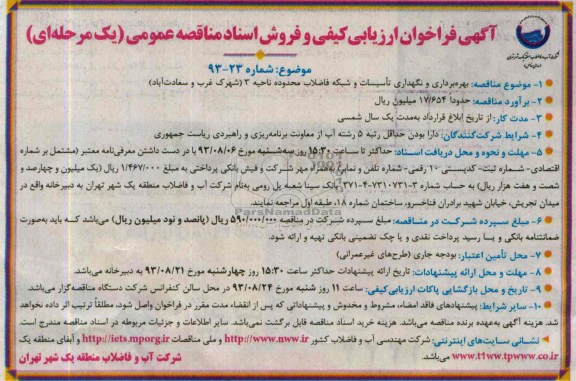 آگهی فراخوان ارزیابی کیفی و فروش اسناد مناقصه عمومی (یک مرحله‌ای)
موضوع: شماره ۲۳-۹۳
۱- موضوع مناقصه: بهره‌برداری و نگهداری تأسیسات و شبکه فاضلاب محدوده ناحیه ۳ (شهرک غرب و سعادت‌آباد)
۲- برآورد مناقصه: حدوداً ۱۷/۶۵۴ میلیون ریال
۳- مدت کار: از تاریخ ابلاغ قرارداد به‌مدت یک سال شمسی
۴- شرایط شرکت‌کنندگان: دارا بودن حداقل رتبه ۵ رشته آب از معاونت برنامه‌ریزی و راهبردی ریاست جمهوری
۵- مهلت و نحوه و محل دریافت اسناد: حداکثر تا ساعت ۱۵:۳۰ روز سه‌شنبه مورخ ۹۳/۰۸/۰۶ با در دست داشتن معرفی‌نامه معتبر (مشتمل بر شماره
اقتصادی- شماره ثبت- کدپستی ۱۰ رقمی- شماره تلفن و نمابر) به‌همراه مهر شرکت و فیش بانکی پرداختی به مبلغ ۱/۴۶۷/۰۰۰ ریال (یک میلیون و چهارصد و
شصت و هفت هزار ریال) به حساب شماره ۳-۴۷۳۱۰۷۳۱-۳۷۱ بانک سینا شعبه پل رومی به‌نام شرکت آب و فاضلاب منطقه یک شهر تهران به دبیرخانه واقع در
میدان تجریش، خیابان شهید برادران فناخسرو، ساختمان شماره ۱۸، طبقه اول مراجعه نمایند.
۶- مبلغ سپرده شرکت در مناقصه: مبلغ سپرده شرکت در مناقصه ۵۹۰/۰۰۰/۰۰۰ ریال (پانصد و نود میلیون ریال) می‌باشد که باید به‌صورت
ضمانتنامه بانکی و یا رسید پرداخت نقدی و یا چک تضمینی بانکی تهیه و ارائه شود.
۷- محل تأمین اعتبار: بودجه جاری (طرح‌های غیرعمرانی)
۸- مهلت و محل ارائه پیشنهادات: تاریخ ارائه پیشنهادات حداکثر ساعت ۱۵:۳۰ روز چهارشنبه مورخ ۹۳/۰۸/۲۱ به دبیرخانه می‌باشد.
۹- تاریخ و محل بازگشایی پاکات ارزیابی کیفی: ساعت ۱۱ روز شنبه مورخ ۹۳/۰۸/۲۴ در محل سالن کنفرانس شرکت دستگاه مناقصه‌گزار می‌باشد.
۱۰- سایر شرایط: پیشنهادهای فاقد امضاء، مشروط و مخدوش و پیشنهاداتی که پس از انقضاء مدت مقرر در فراخوان واصل شود، مطلقاً ترتیب اثر داده نخواهد
شد. هزینه آگهی به‌عهده برنده مناقصه می‌باشد. هزینه خرید اسناد مناقصه قابل برگشت نمی‌باشد. سایر اطلاعات و جزئیات مربوطه در اسناد مناقصه مندرج است.
نشانی سایت‌های اینترنتی: شرکت مهندسی آب و فاضلاب کشور http://www.nww.ir و ملی مناقصات http://iets.mporg.ir و آبفای منطقه یک
www.t1ww.tpww.co.ir می‌باشد.
شرکت آب و فاضلاب منطقه یک شهر تهران